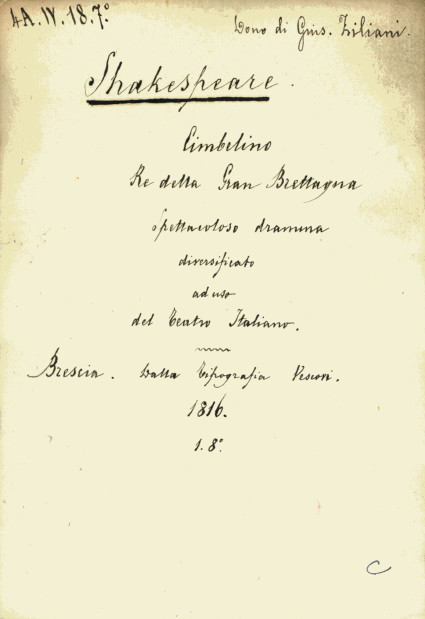 4A.IV.18.7.°
Dono di Gius. Ziliani.
Shakespeare.
Cimbelino
Re della Gran Brettagna
Spettacoloso dramma
diversificato
ad uso
del Teatro Italiano.
Brescia. Dalla Tipografia Vescovi.
1816.
1. 8°.
C